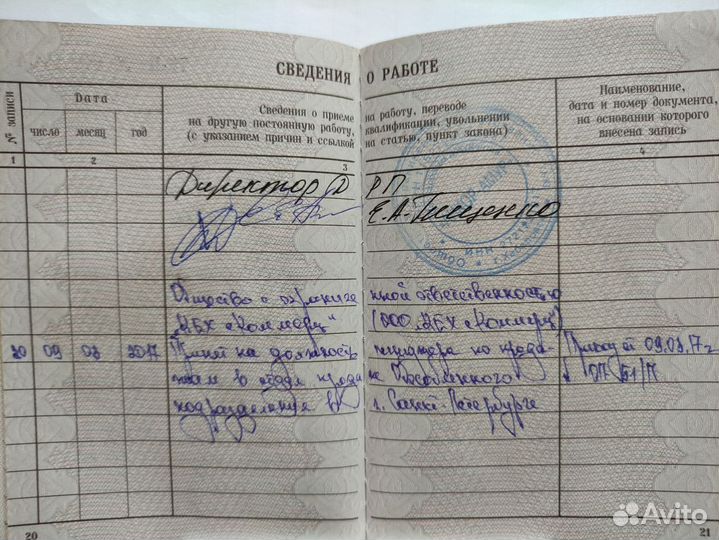 СВЕДЕНИЯ О РАБОТЕ
№ записи
Дата
Сведения о приеме на работу, переводе
на другую постоянную работу, квалификации, увольнении
(с указанием причин и ссылкой на статью, пункт закона)
Наименование,
дата и номер документа,
на основании которого
внесена запись
число месяц год
1 2 3 4
Директор Д РП
Е.А. Тищенко
ИНН
Общество с ограниченной ответственностью
(ООО
20 09 03 2017 Принят на должность менеджера по прода-
жам в отдел продаж Обособленного
подразделения в г. Санкт-Петербурге
Приказ от 09.03.17 г
20
21
Avito